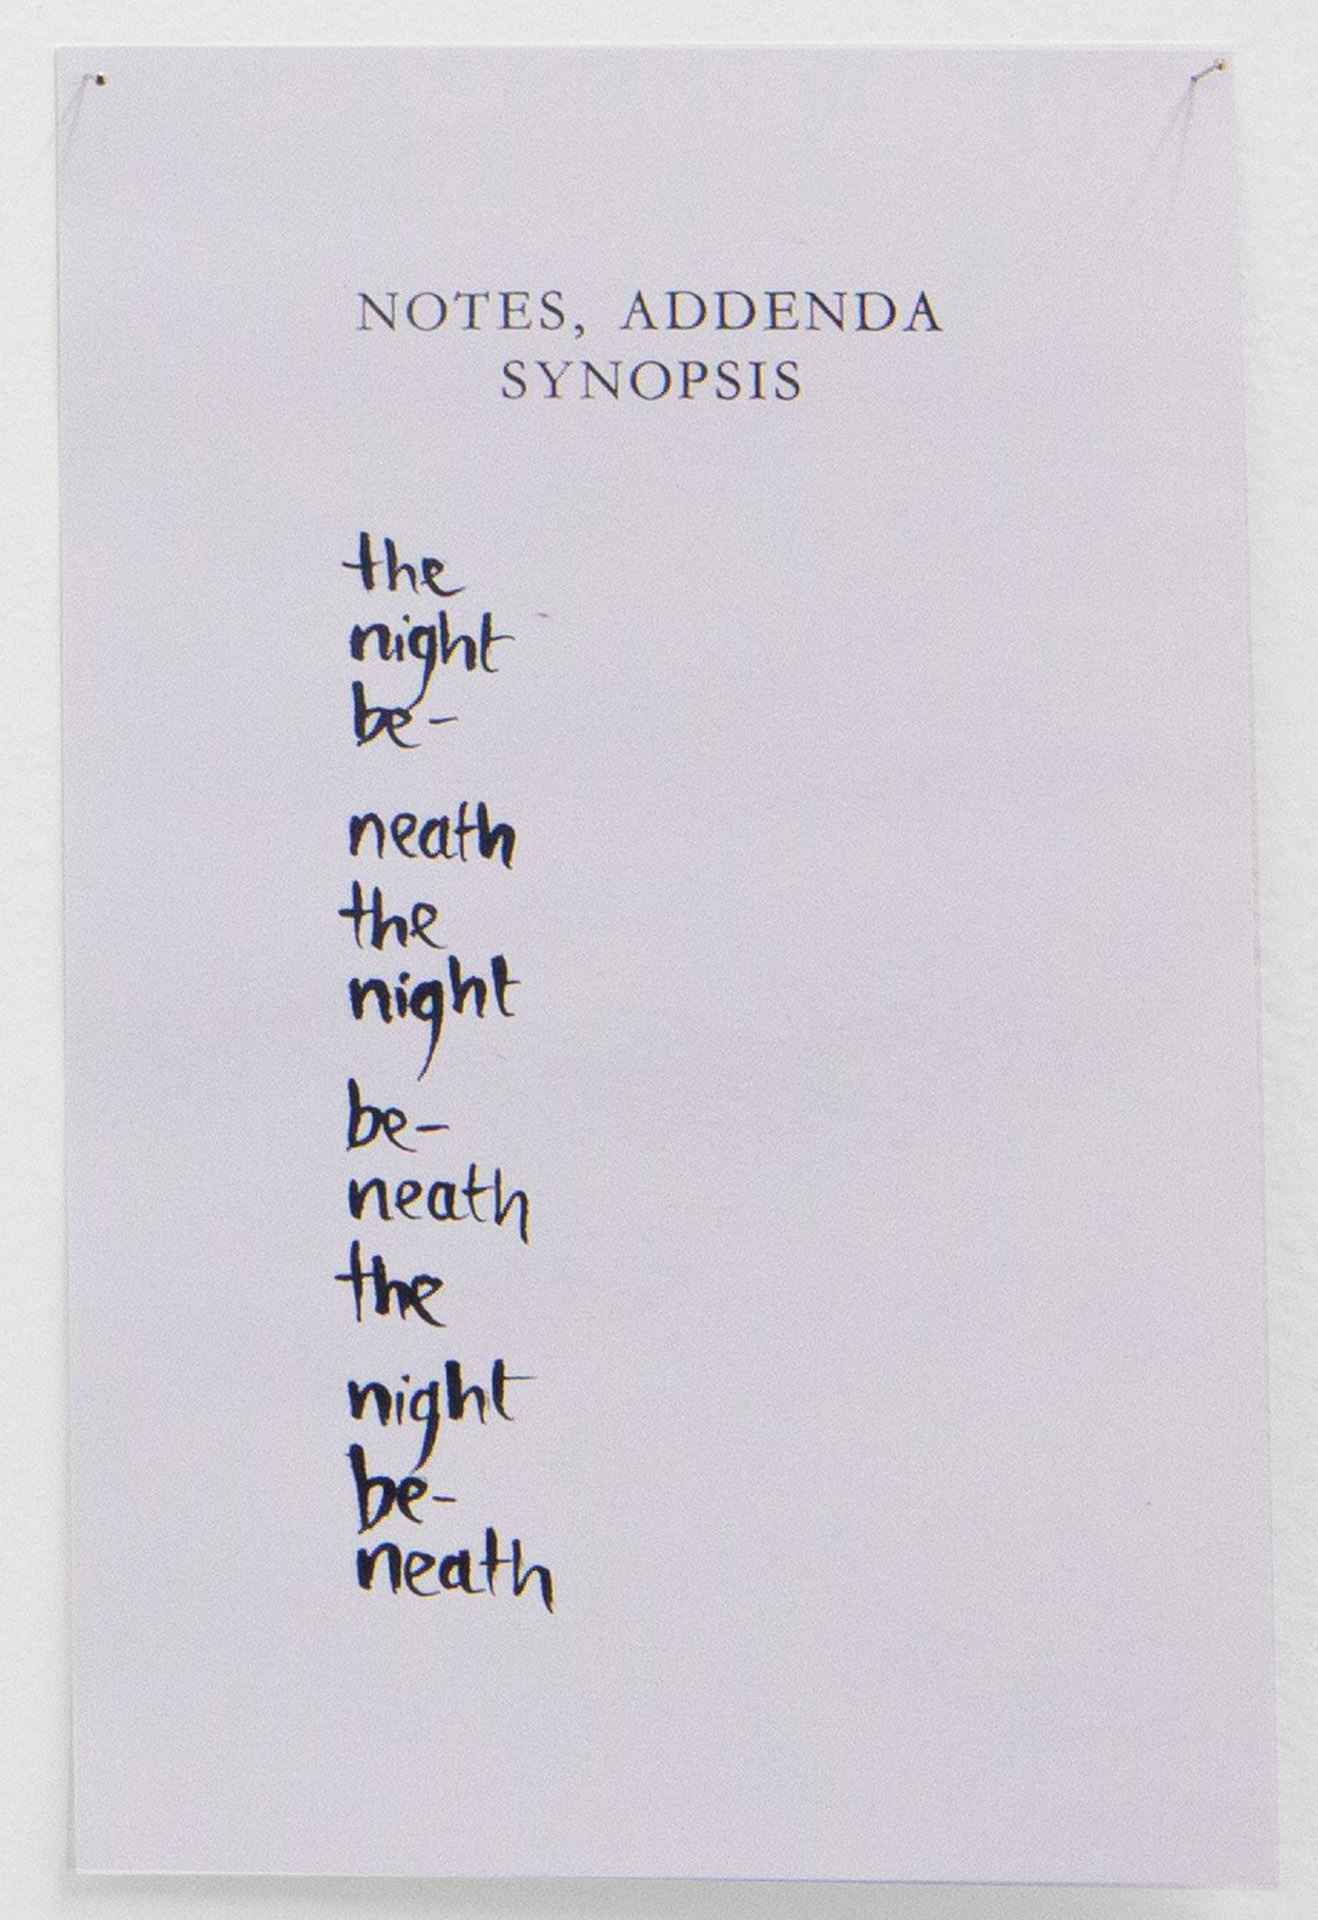 NOTES, ADDENDA
SYNOPSIS
the
night
be-
neath
the
night
be-
neath
the
night
be-
neath